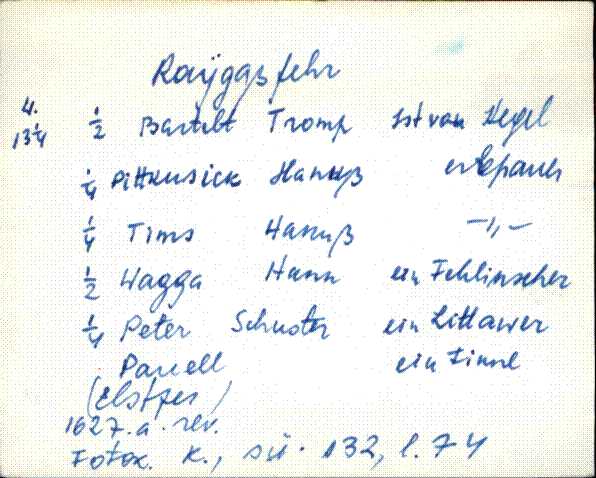 Rayggsfehr
4.
13 1/4 1/2 Bartelt Tromp Ist von Hegel
1/4 Pittkusick Hanuß erbpauer
1/4 Tims Hanuß -"-
1/2 Wagga Hann ein Fehlinscher
1/4 Peter Schuster ein Littawer
Pauell ein Finne
(Elstfer)
1627. a. rev.
Fotok. K., sü. 132, l. 74